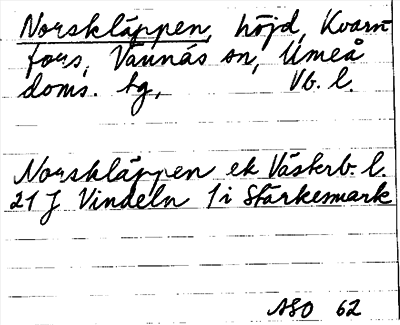 Norskläppen, höjd, Kvarn-
fors, Vännäs sn, Umeå
doms. tg, Vb. l.
Norskläppen ek Västerb. l.
21 J Vindeln 1 i Starkesmark
ASO 62